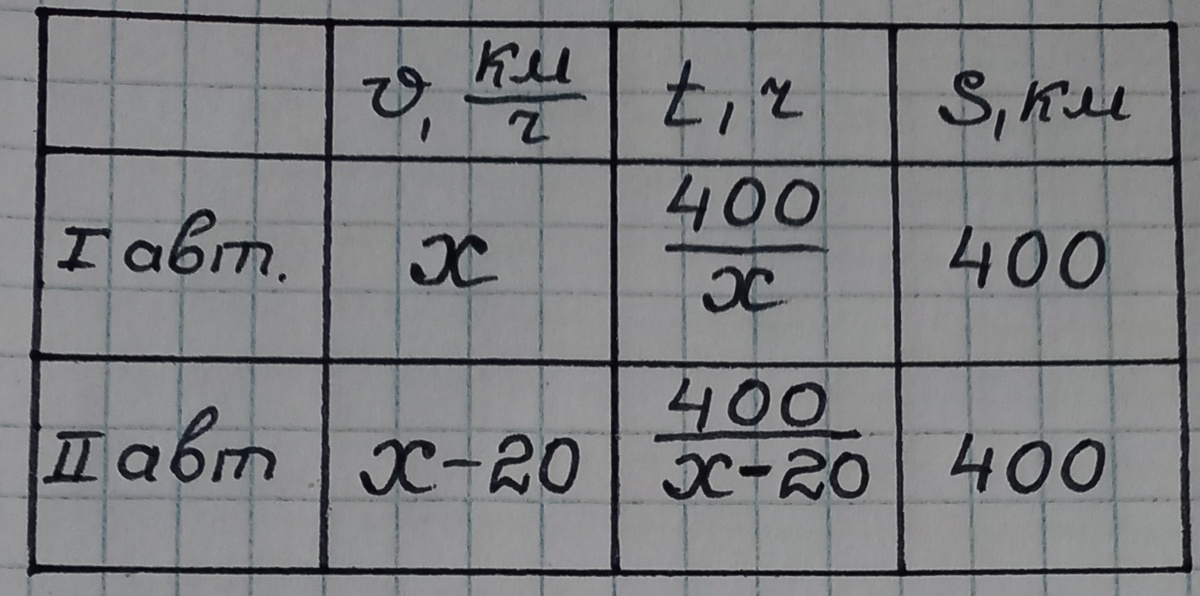 υ, км/ч t, ч S, км
I авт. x 400/x 400
II авт x-20 400/x-20 400